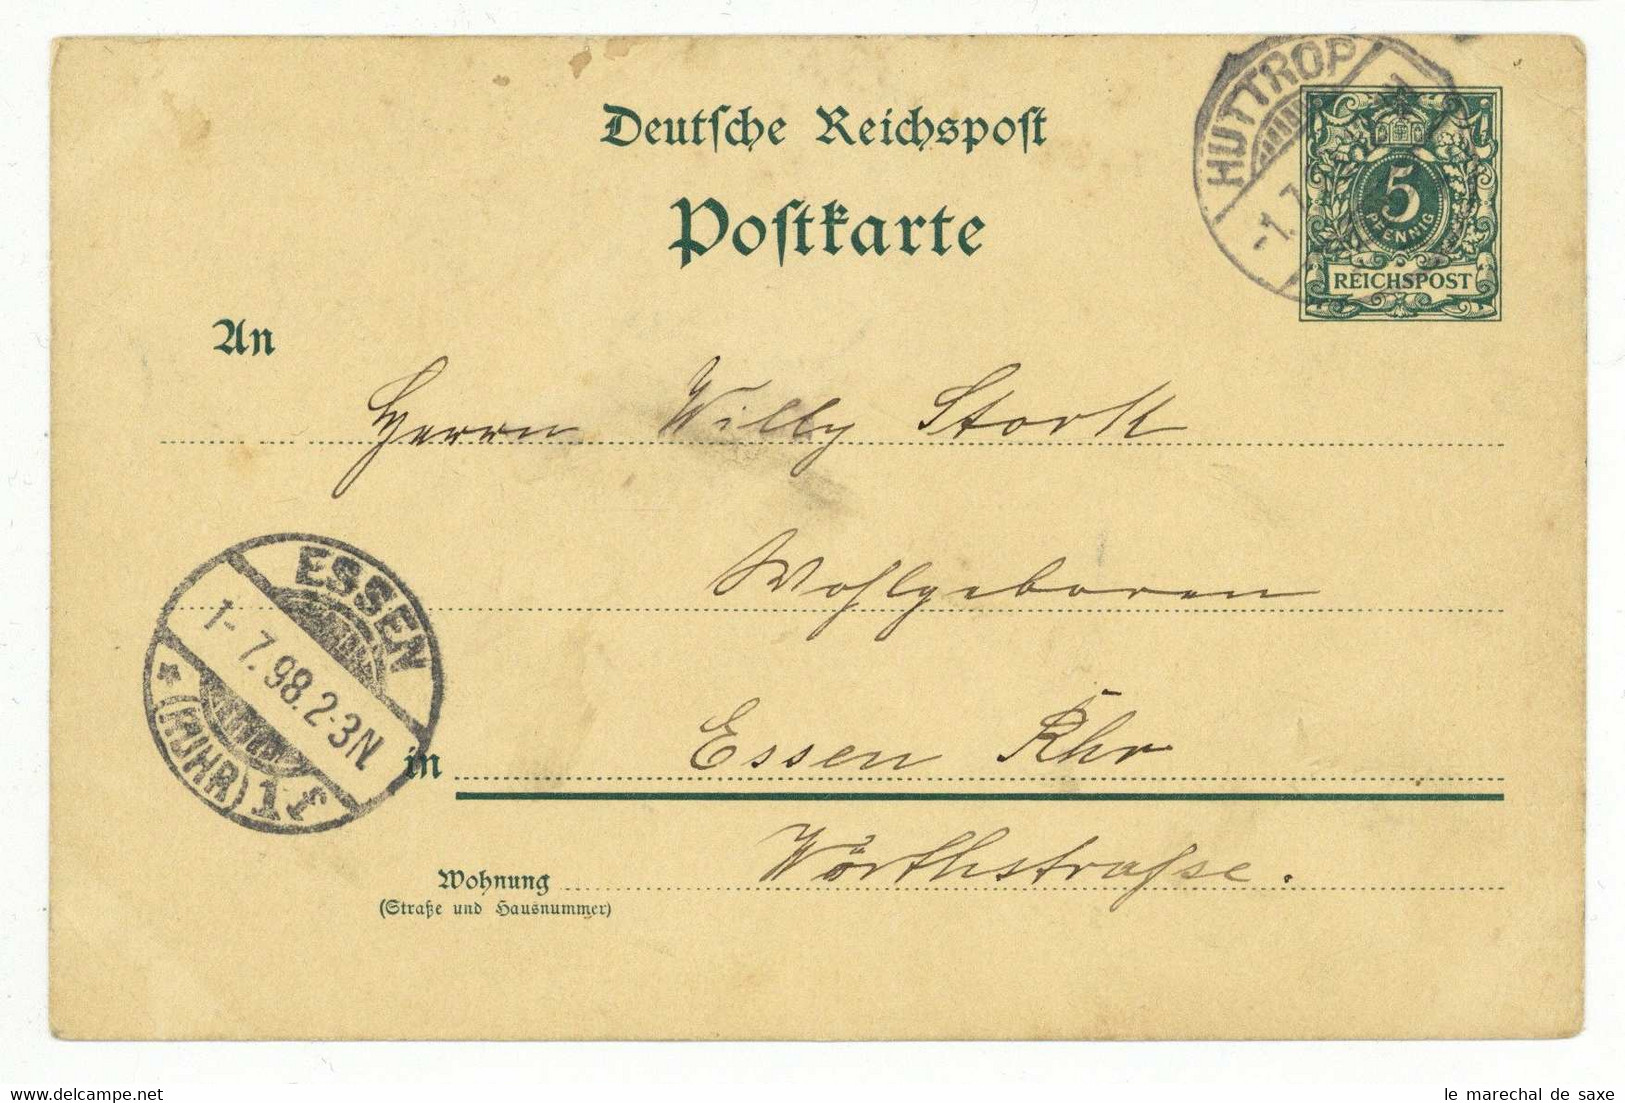 Deutsche Reichspost
Postkarte
HUTTROP
-1. 7.
5
PFENNIG
REICHSPOST
An
Herrn Willy Stork
Wohlgeboren
ESSEN
1-7.98.2-3N.
* (RUHR) 1f
in Essen Rhr
Wohnung Wörthstraße.
(Straße und Hausnummer)
le marechal de saxe